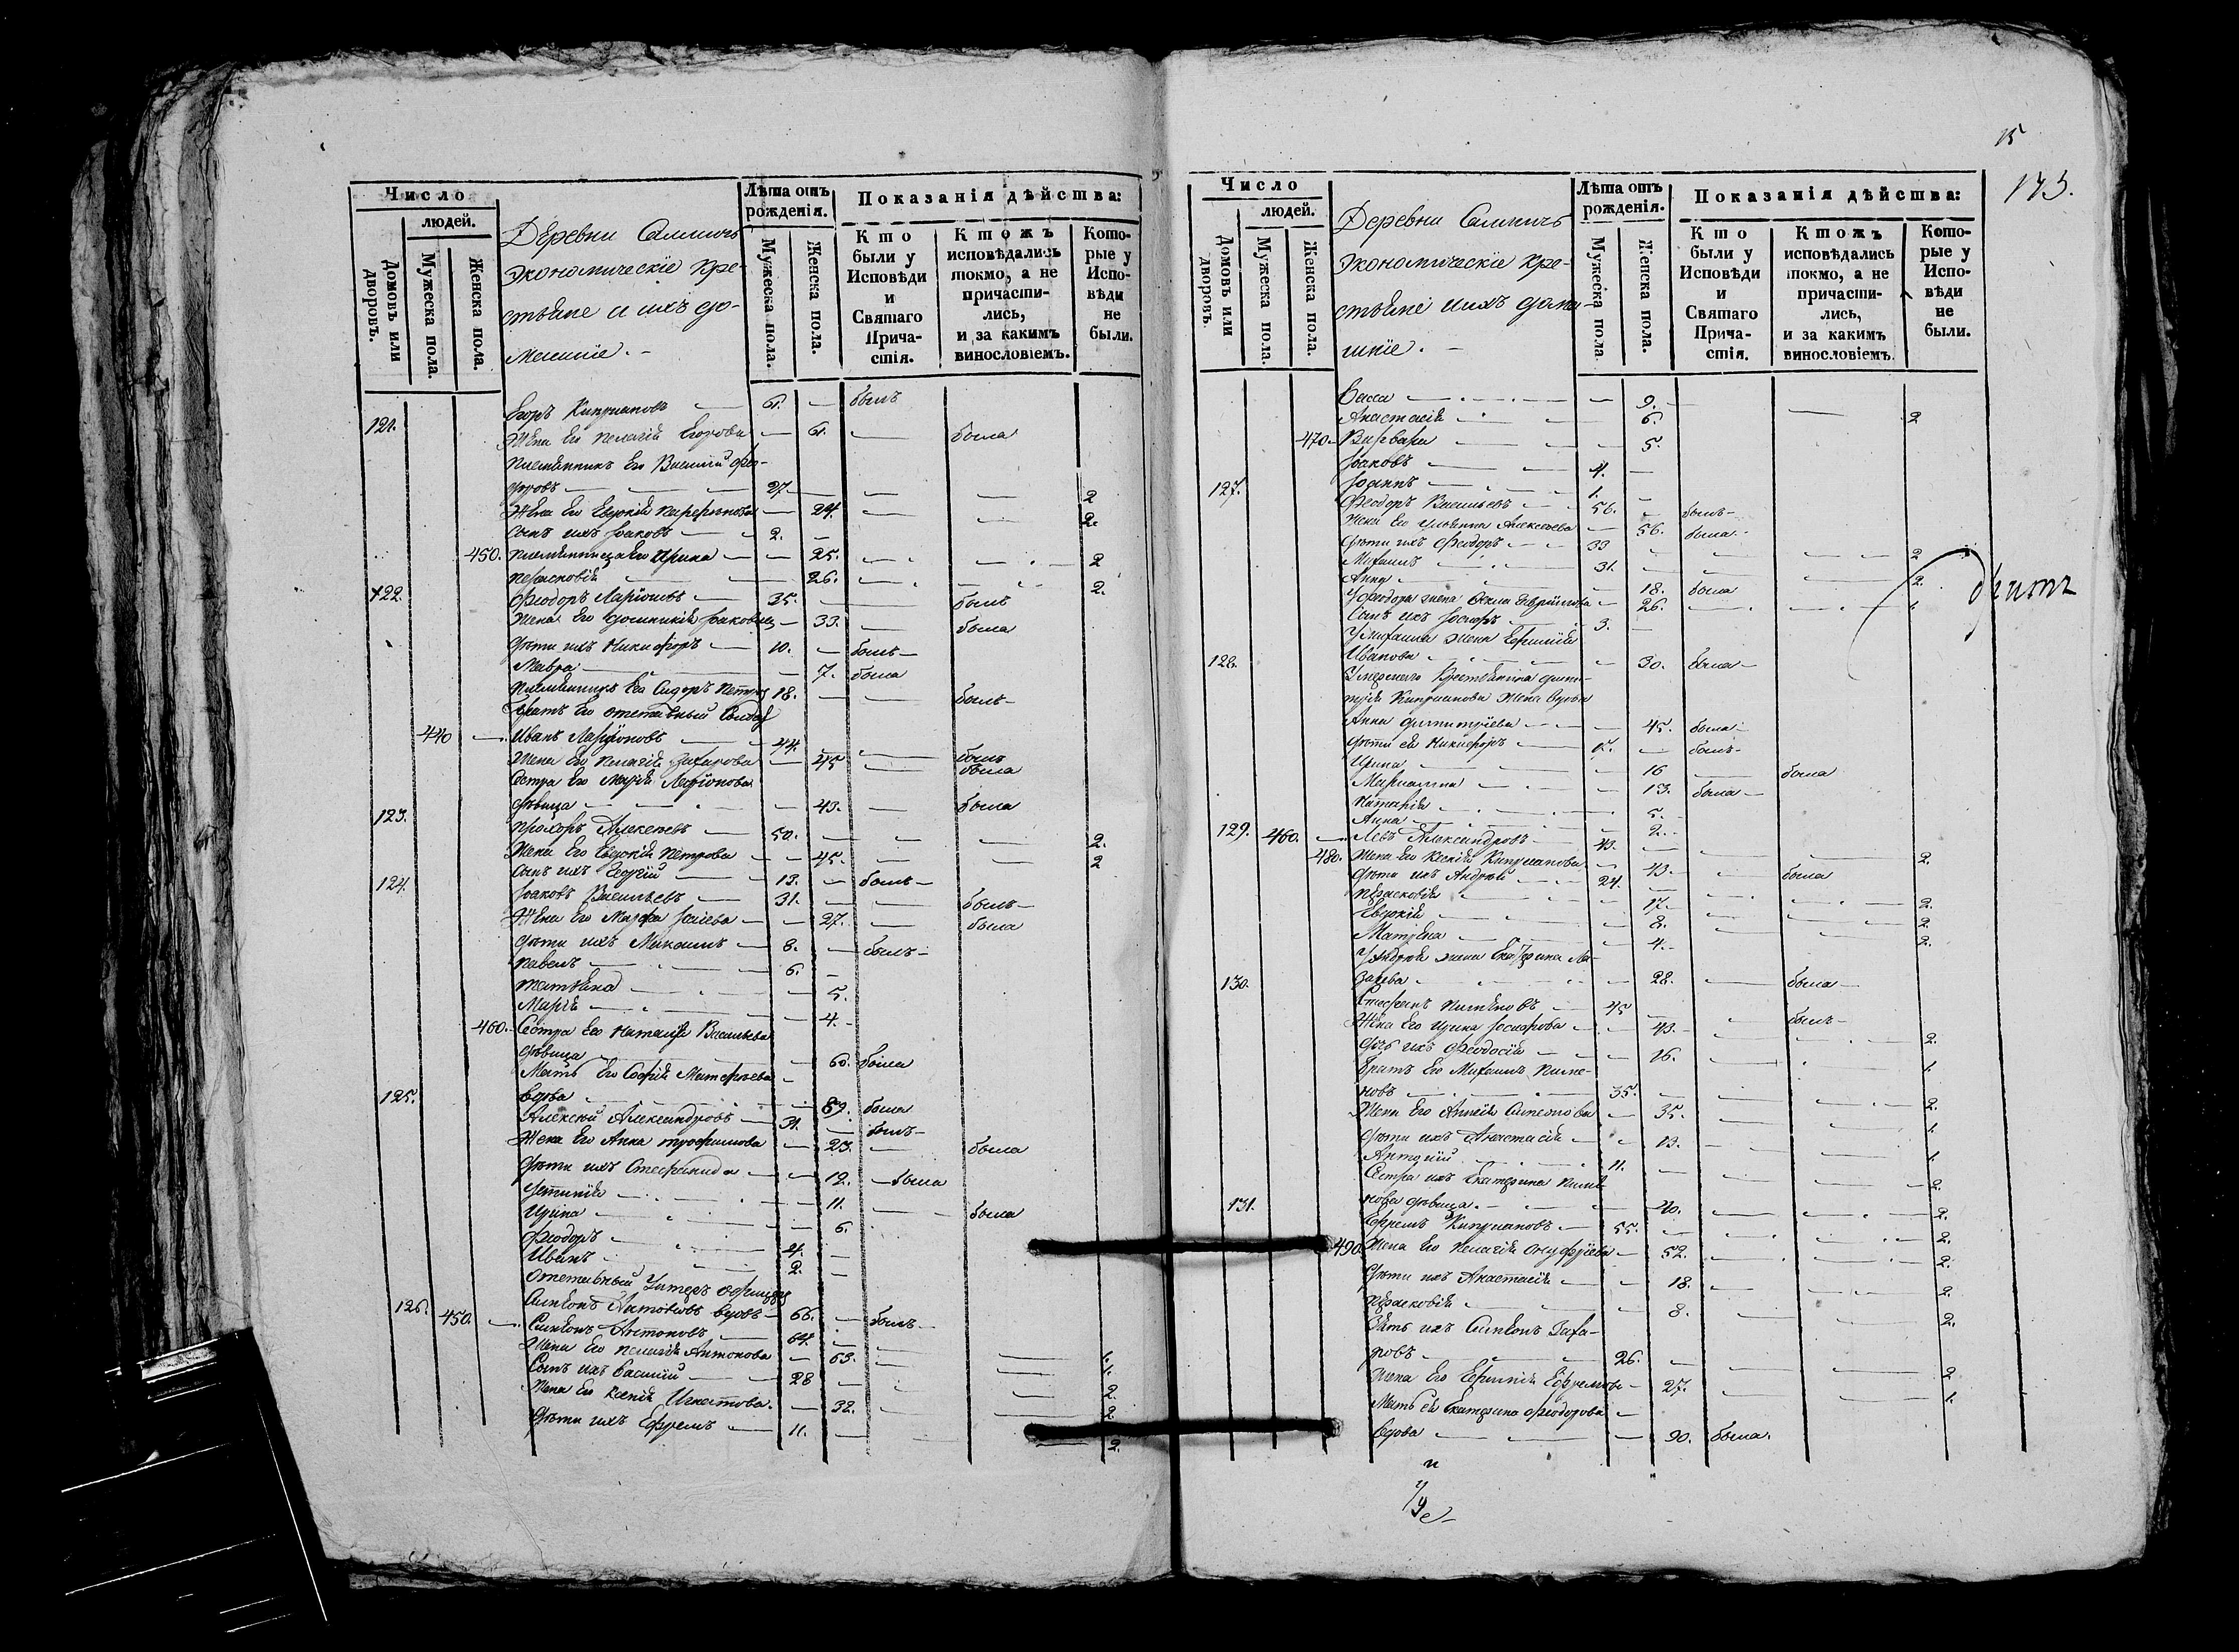 Число
людей.
Домовъ или дворовъ.
Мужеска пола.
Женска пола.
Деревни
Экономическіе кре-
стьяне и ихъ до-
машніе. -
Лѣта отъ рожденія.
Мужеска пола.
Женска пола.
Показанія дѣйства:
Кто были у Исповѣди и Святаго Причастія.
Ктожъ исповѣдались токмо, а не причастились, и за какимъ винословіемъ.
Которые у Исповѣди не были.
121. Егоръ Киприановъ 61. — былъ
Жена Его Пелагія Егорова — 61. — была
Племянникъ Его Василий Фео-
доровъ 27. — — — 2
Жена Его Евдокія — 24. — — 2.
Сынъ ихъ Іаковъ — 2. —
450. Племянница Его Ирина — 25. — — 2
Парасковія — 26. — — 2.
122. Феодоръ Ларіоновъ — 35. — былъ
Жена Его Іаковлева — 33. — была
Дѣти ихъ Никифоръ — 10. — былъ —
Мавра — 7. была
Племянникъ Его Сидоръ Петровъ 18. — — былъ —
Братъ Его отставный
440 — Иванъ Ларіоновъ — 44. — — былъ
Жена Его Пелагія Захарова — 45 — была
Сестра Его Марія Ларіонова
дѣвица — 43. — была
123. Прохоръ Алексѣевъ — 50. — — — 2.
Жена Его Евдокія Петрова — 45. — — 2
Сынъ ихъ Георгій — 13. — былъ —
124. Іаковъ Васильевъ — 31. — — былъ —
Жена Его Марфа Исаева — 27. — была
Дѣти ихъ Михаилъ — 8. — былъ —
Павелъ — 6. —
Татьяна — 5.
Марія — 4. —
460. Сестра Его Наталія Васильева
дѣвица — 60. была
Мать Его Софія Матфеева —
вдова — 89. была
125. Алексѣй Александровъ — 31. — былъ —
Жена Его Анна Трофимова — 23. — была
Дѣти ихъ Стефанида — 12. — была
Устинія — 11. — была
Ирина — 6.
Феодоръ — 4. —
Иванъ — 2. —
Отставный Унтеръ офицеръ
Симеонъ Антоновъ вдовъ — 66. — былъ —
126. 450. — Симеонъ Антоновъ — 64. —
Жена Его Пелагія Антонова — 63. — — 1.
Сынъ ихъ Василій — 28 — — 1.
Жена Его Ксенія Игнатова. — 32. — — 2.
Дѣти ихъ Ефремъ — 11. — — 2.
15
173.
Число
людей.
Домовъ или дворовъ.
Мужеска пола.
Женска пола.
Деревни
Экономическіе кре-
стьяне и ихъ дома-
шніе. -
Лѣта отъ рожденія.
Мужеска пола.
Женска пола.
Показанія дѣйства:
Кто были у Исповѣди и Святаго Причастія.
Ктожъ исповѣдались токмо, а не причастились, и за какимъ винословіемъ.
Которые у Исповѣди не были.
Васса — 9. — — 2
Анастасія — 6.
470. Варвара — 5.
Іаковъ — 4. —
Іоаннъ — 1. —
127. Феодоръ Васильевъ — 56. — былъ —
Жена Его Ульяна Алексѣева — 56. была. —
Дѣти ихъ Феодоръ — 33 — — — 2
Михаилъ — 31. — — 2.
Анна — 18. была
У Феодора жена Фекла — 26. — — 1.
Сынъ ихъ Іосифъ — 3. —
У Михаила жена Евфимія
Иванова — 30. была —
128. Умершаго крестьянина Дими-
трія Киприанова жена вдова
Анна Димитріева — 45. была —
Дѣти ея Никифоръ — — былъ —
Ирина — 16 — была
Мариамна — 13. была —
Наталія — 5. —
Анна — 2. —
129. 460. — Левъ Александровъ — 43. — — — 2.
480. Жена Его Ксенія Киприанова — 43. — была
Дѣти ихъ Андрей — 24. — — — 2.
Парасковія — 17. — — 2.
Евдокія — 8. — — 2.
Матрена — 4. —
У Андрея жена Екатерина Ла-
зарева — 28. — была —
130. Стефанъ Пименовъ — 45 — — былъ —
Жена Его Ирина Іосифова — 43. — — 2.
Дочь ихъ Феодосія — 16. — — 1.
Братъ Его Михаилъ Пиме-
новъ — 35. — — — 2.
Жена Его Симеонова — 35. — — 1.
Дѣти ихъ Анастасія — 13. — — 1.
11. — — — 2.
Сестра ихъ Екатерина Пиме-
нова дѣвица. — 40. — — 2.
131. Ефремъ Киприановъ — 55. — — — 2.
490. Жена Его Пелагія Онуфріева — 52. — — 2.
Дѣти ихъ Анастасія — 18. — — 2.
Парасковія — 8. — — 2.
Зять ихъ Симеонъ Заха-
ровъ — 26. — — — 2
Жена Его Евфимія Ефремова — 27. — — 1.
Мать Ея Екатерина Феодорова —
вдова — 90. была.